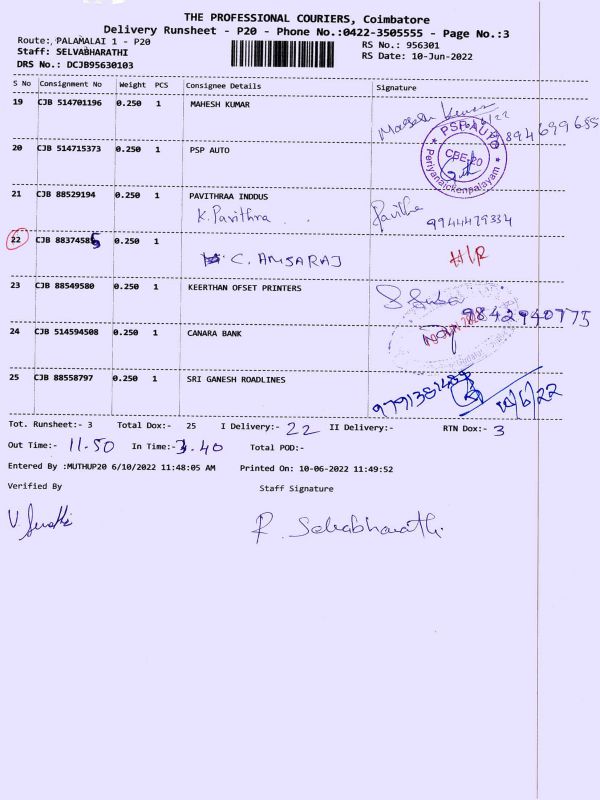 THE PROFESSIONAL COURIERS, Coimbatore
Delivery Runsheet - P20 - Phone No.:0422-3505555 - Page No.:3
Route: PALAMALAI 1 - P20
RS No.: 956301
Staff: SELVABHARATHI
RS Date: 10-Jun-2022
DRS No.: DCJB95630103
S No Consignment No Weight PCS Consignee Details Signature
19 CJB 514701196 0.250 1 MAHESH KUMAR
20 CJB 514715373 0.250 1 PSP AUTO
PSP AUTO
CBE-20
Periyanaickenpalayam
21 CJB 88529194 0.250 1 PAVITHRAA INDDUS
K. Pavithra
Pavitha
9944479334
22 CJB 88374585 0.250 1
C. AMSARAJ
H/R
23 CJB 88549580 0.250 1 KEERTHAN OFSET PRINTERS
S Suba
9842940775
24 CJB 514594508 0.250 1 CANARA BANK
25 CJB 88558797 0.250 1 SRI GANESH ROADLINES
10/6/22
Tot. Runsheet:- 3 Total Dox:- 25 I Delivery:- 22 II Delivery:- RTN Dox:- 3
Out Time:- 11.50 In Time:- 3.40 Total POD:-
Entered By :MUTHUP20 6/10/2022 11:48:05 AM Printed On: 10-06-2022 11:49:52
Verified By Staff Signature
R. Selvabharathi